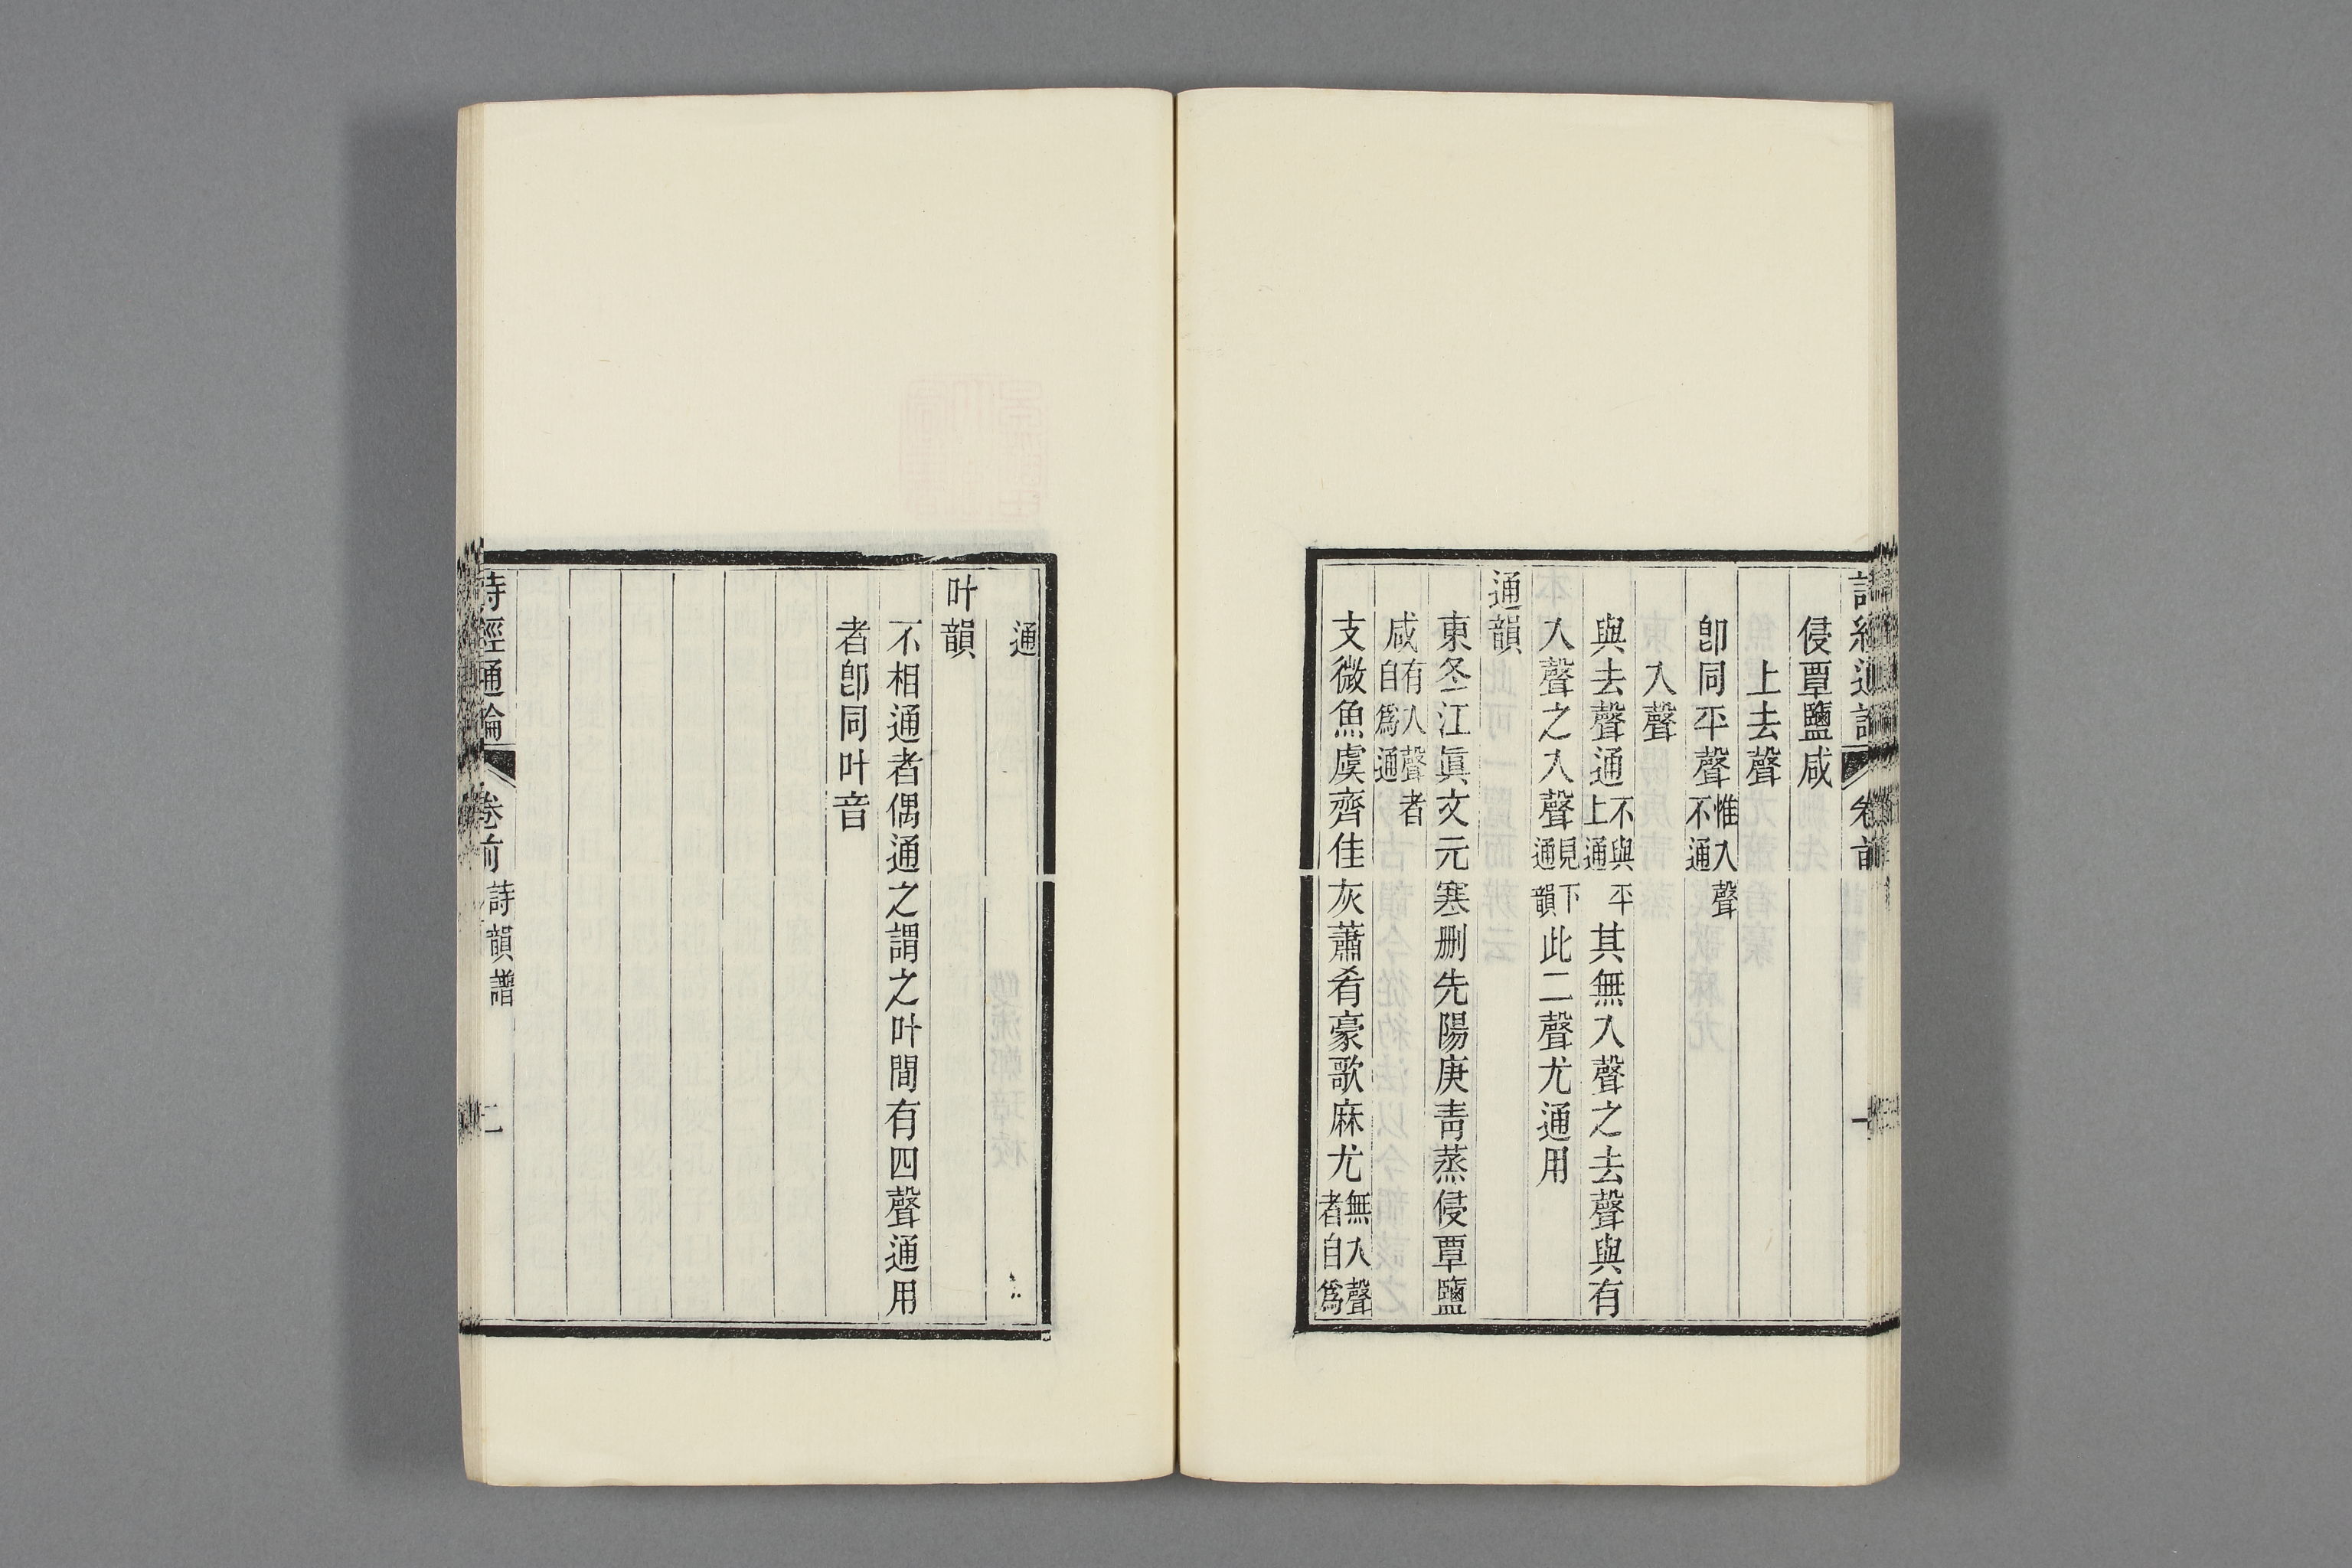 侵覃鹽咸
上去聲
卽同平聲惟入聲不通
入聲
與去聲通不與平上通其無入聲之去聲與有
入聲之入聲見下通韻此二聲尤通用
通韻
東冬江眞文元寒刪先陽庚靑蒸侵覃鹽
咸有入聲者自爲通
支微魚虞齊佳灰蕭肴豪歌麻尤無入聲者自爲
通
叶韻
不相通者偶通之謂之叶間有四聲通用
者卽同叶音
詩經通論 卷前 詩韻譜 二